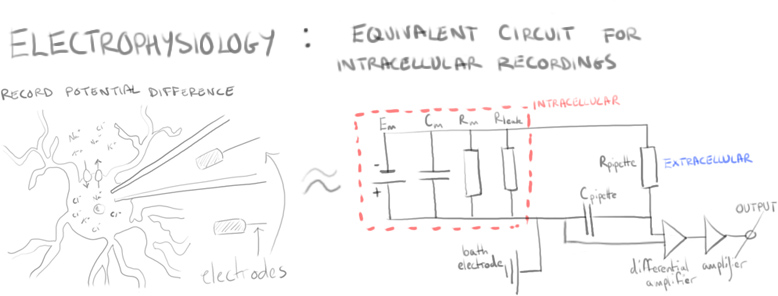 ELECTROPHYSIOLOGY : EQUIVALENT CIRCUIT FOR
INTRACELLULAR RECORDINGS
RECORD POTENTIAL DIFFERENCE
electrodes
INTRACELLULAR
Em Cm Rm Rleak
- 
+
Rpipette
EXTRACELLULAR
Cpipette
bath
electrode
OUTPUT
differential
amplifier
amplifier